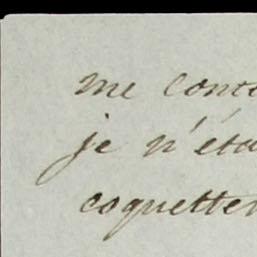 me cont
je n'éta
coquette